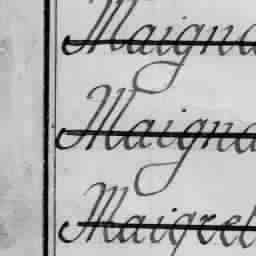 Maigna
Maigna
Maigrel